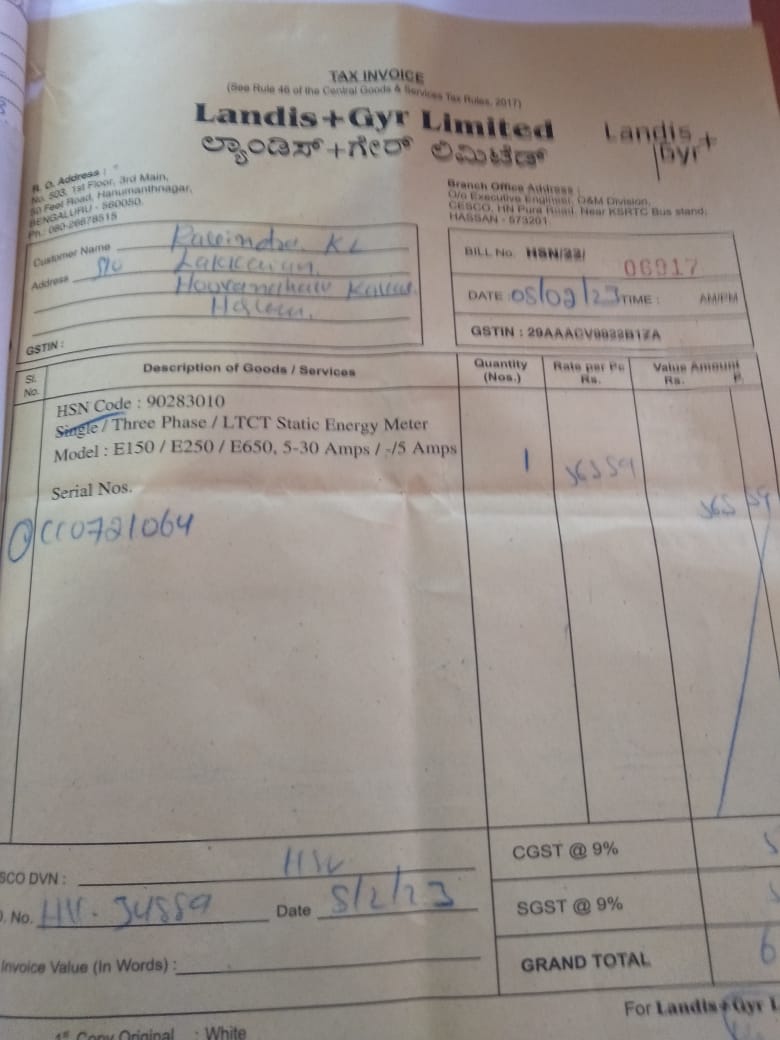 TAX INVOICE
(See Rule 46 of the Central Goods & Services Tax Rules, 2017)
Landis+Gyr Limited
ಲ್ಯಾಂಡಿಸ್+ಗೇರ್ ಲಿಮಿಟೆಡ್
Landis+
Gyr
R. O. Address :
No. 503, 1st Floor, 3rd Main,
50 Feet Road, Hanumanthnagar,
BENGALURU - 560050.
Ph.: 080-26678515
Branch Office Address :
O/o Executive Engineer, O&M Division,
CESCO, HN Pura Road, Near KSRTC Bus stand,
HASSAN - 573201
Customer Name
Address S/o
GSTIN :
BILL No. HSN/22/ 06917
DATE : 05/02/23 TIME : AM/PM
GSTIN :
Sl. No. Description of Goods / Services Quantity (Nos.) Rate per Pc Rs. Value Amount Rs. P.
HSN Code : 90283010
Single / Three Phase / LTCT Static Energy Meter
Model : E150 / E250 / E650, 5-30 Amps / -/5 Amps 1
Serial Nos.
CGST @ 9%
SCO DVN :
SGST @ 9%
No. Date 5/2/23
Invoice Value (In Words) :
GRAND TOTAL 6
For Landis+Gyr L
1st Copy Original : White